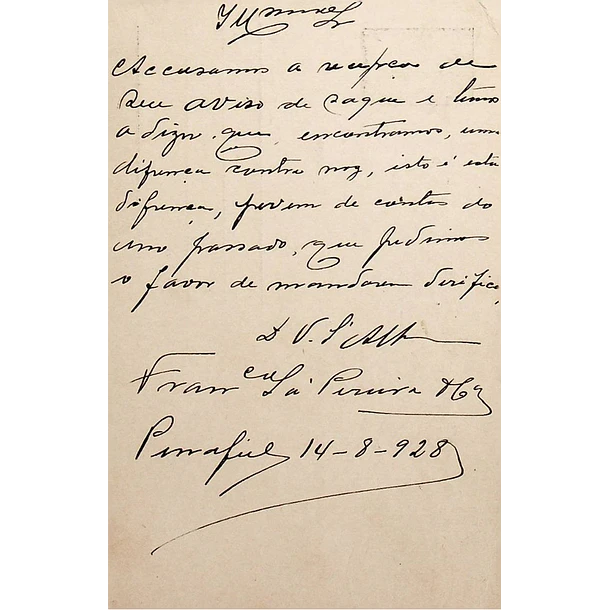 Accusamos a recepção de
seu aviso de saque e temos
a dizer que, encontramos, uma
difrença contra noz, isto é esta
difrença, provem de contas do
ano passado, que pedimos
o favor de mandarem verificar,
D V.
Franco Sá Pereira & Ca
Penafiel 14-8-928